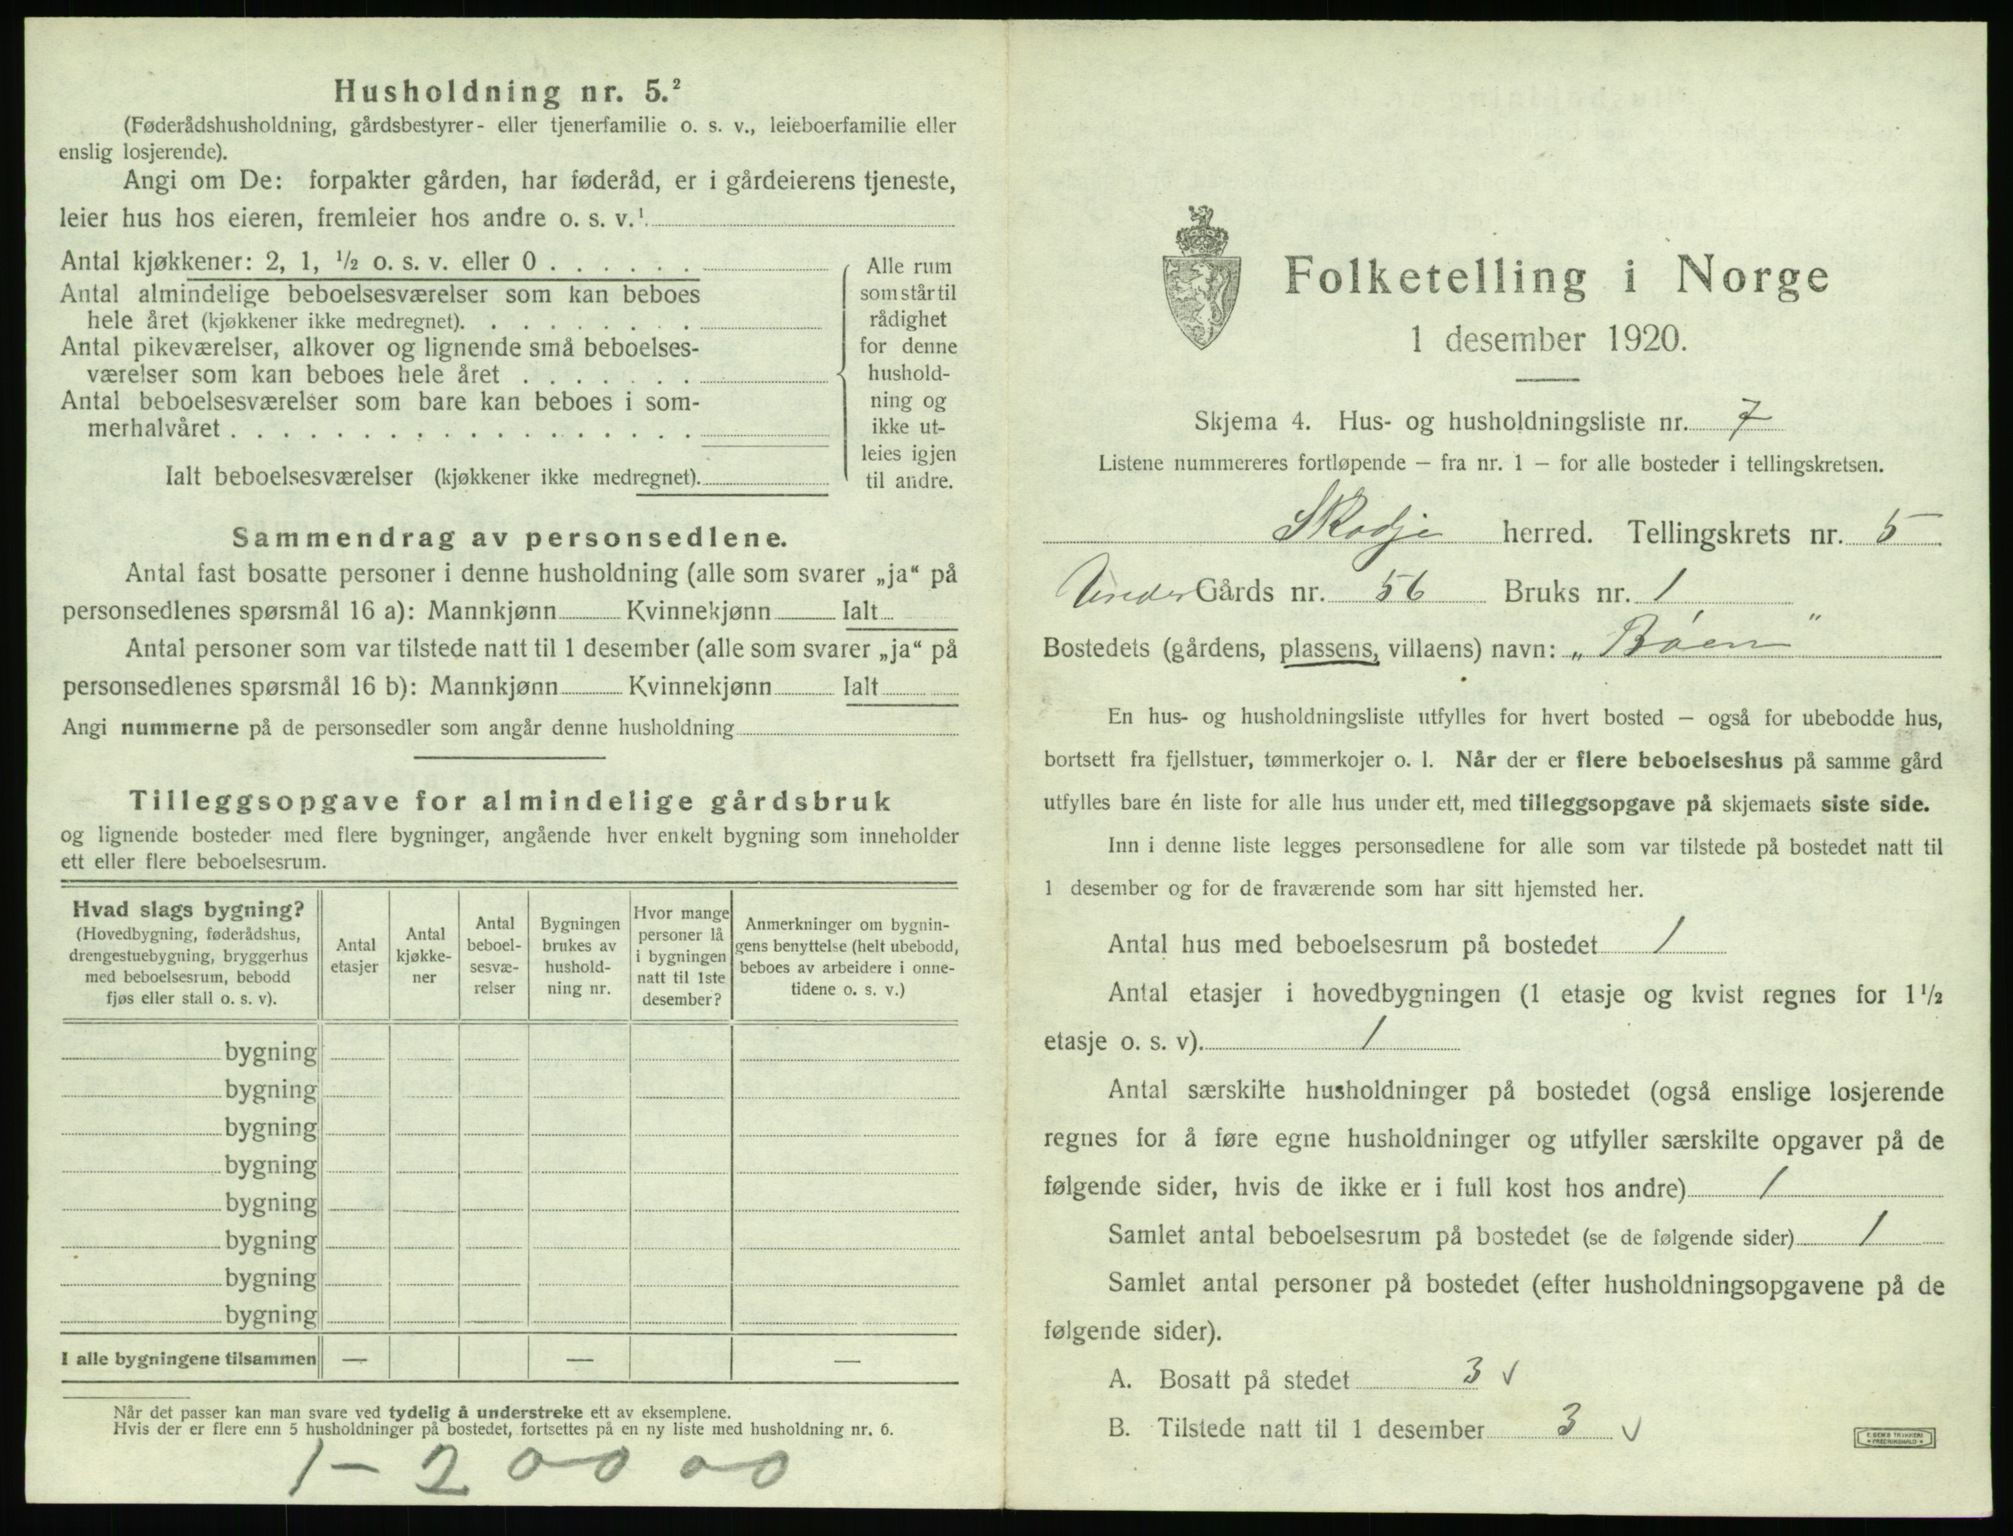 Husholdning nr. 5.²
(Føderådshusholdning, gårdsbestyrer- eller tjenerfamilie o. s. v., leieboerfamilie eller
enslig losjerende).
Angi om De: forpakter gården, har føderåd, er i gårdeierens tjeneste,
leier hus hos eieren, fremleier hos andre o. s. v.¹
Antal kjøkkener: 2, 1, ½ o. s. v. eller 0
Antal almindelige beboelsesværelser som kan beboes
hele året (kjøkkener ikke medregnet).
Antal pikeværelser, alkover og lignende små beboelses-
værelser som kan beboes hele året
Antal beboelsesværelser som bare kan beboes i som-
merhalvåret
Ialt beboelsesværelser (kjøkkener ikke medregnet).
Alle rum
som står til
rådighet
for denne
hushold-
ning og
ikke ut-
leies igjen
til andre.
Sammendrag av personsedlene.
Antal fast bosatte personer i denne husholdning (alle som svarer „ja“ på
personsedlenes spørsmål 16 a): Mannkjønn Kvinnekjønn Ialt
Antal personer som var tilstede natt til 1 desember (alle som svarer „ja“ på
personsedlenes spørsmål 16 b): Mannkjønn Kvinnekjønn Ialt
Angi nummerne på de personsedler som angår denne husholdning
Tilleggsopgave for almindelige gårdsbruk
og lignende bosteder med flere bygninger, angående hver enkelt bygning som inneholder
ett eller flere beboelsesrum.
Hvad slags bygning?
(Hovedbygning, føderådshus,
drengestuebygning, bryggerhus
med beboelsesrum, bebodd
fjøs eller stall o. s. v).
Antal
etasjer
Antal
kjøkke-
ner
Antal
beboel-
sesvæ-
relser
Bygningen
brukes av
hushold-
ning nr.
Hvor mange
personer lå
i bygningen
natt til 1ste
desember?
Anmerkninger om bygnin-
gens benyttelse (helt ubebodd,
beboes av arbeidere i onne-
tidene o. s. v.)
bygning
bygning
bygning
bygning
bygning
bygning
bygning
bygning
I alle bygningene tilsammen — — —
Når det passer kan man svare ved tydelig å understreke ett av eksemplene.
Hvis der er flere enn 5 husholdninger på bostedet, fortsettes på en ny liste med husholdning nr. 6.
1 - 2 00 00
Folketelling i Norge
1 desember 1920.
Skjema 4. Hus- og husholdningsliste nr. 7
Listene nummereres fortløpende — fra nr. 1 — for alle bosteder i tellingskretsen.
Skodje herred. Tellingskrets nr. 5
Under Gårds nr. 56 Bruks nr. 1
Bostedets (gårdens, plassens, villaens) navn: „Bøen"
En hus- og husholdningsliste utfylles for hvert bosted — også for ubebodde hus,
bortsett fra fjellstuer, tømmerkojer o. l. Når der er flere beboelseshus på samme gård
utfylles bare én liste for alle hus under ett, med tilleggsopgave på skjemaets siste side.
Inn i denne liste legges personsedlene for alle som var tilstede på bostedet natt til
1 desember og for de fraværende som har sitt hjemsted her.
Antal hus med beboelsesrum på bostedet 1
Antal etasjer i hovedbygningen (1 etasje og kvist regnes for 1½
etasje o. s. v). 1
Antal særskilte husholdninger på bostedet (også enslige losjerende
regnes for å føre egne husholdninger og utfyller særskilte opgaver på de
følgende sider, hvis de ikke er i full kost hos andre) 1
Samlet antal beboelsesrum på bostedet (se de følgende sider) 1
Samlet antal personer på bostedet (efter husholdningsopgavene på de
følgende sider).
A. Bosatt på stedet 3 ✓
B. Tilstede natt til 1 desember 3 ✓